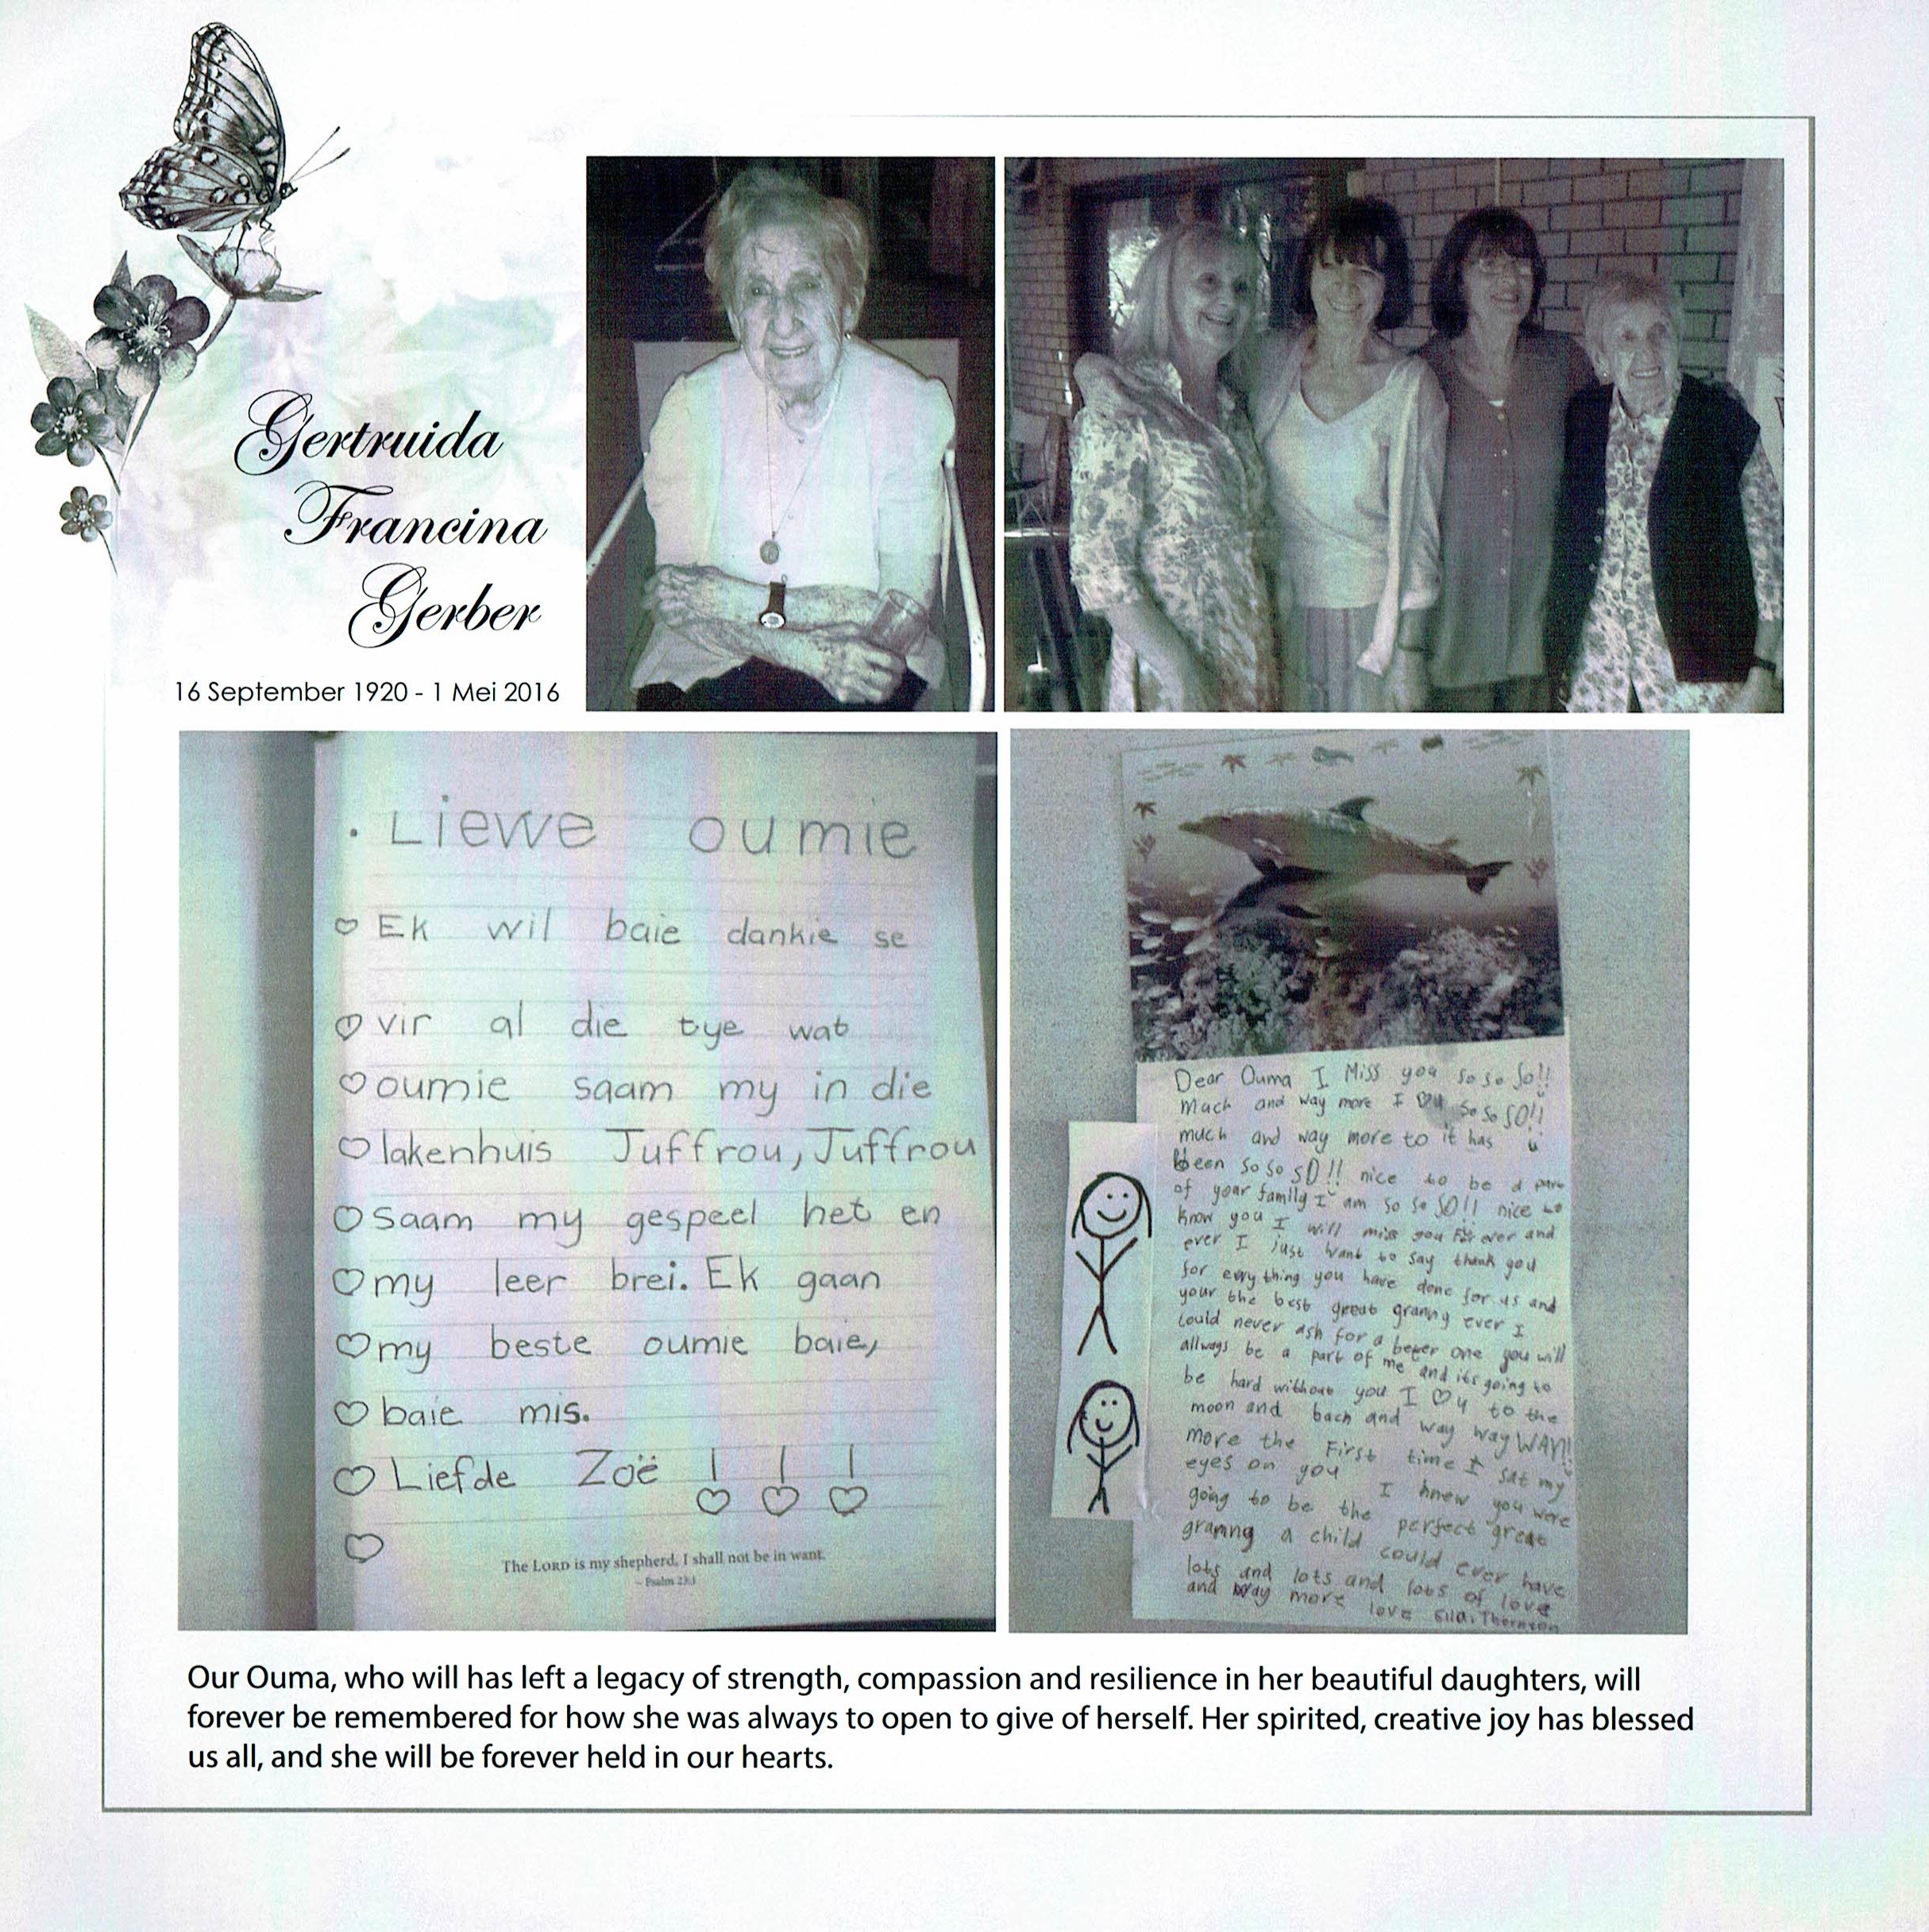 Gertruida
Francina
Gerber
16 September 1920 - 1 Mei 2016
. Liewe oumie
Ek wil baie dankie se
vir al die tye wat
oumie saam my in die
lakenhuis Juffrou, Juffrou
saam my gespeel het en
my leer brei. Ek gaan
my beste oumie baie,
baie mis.
Liefde Zoë ! ! !
The LORD is my shepherd, I shall not be in want.
~ Psalm 23:1
Dear Ouma I Miss you so so So!!
Much and way more I ♡ u so so SO!!
much and way more to it has
been so so sO!! nice to be a part
of your family I am so so SO!! nice to
know you I will miss you For ever and
ever I just want to say thank you
for evry thing you have done for us and
your the best great granny ever I
could never ask for a beter one you will
allways be a part of me and its going to
be hard without you I ♡ u to the
moon and back and way way WAY!!
more the First time I sat my
eyes on you I knew you were
going to be the perfect great
granng a child could ever have
lots and lots and lots of love
and way more love
Our Ouma, who will has left a legacy of strength, compassion and resilience in her beautiful daughters, will
forever be remembered for how she was always to open to give of herself. Her spirited, creative joy has blessed
us all, and she will be forever held in our hearts.